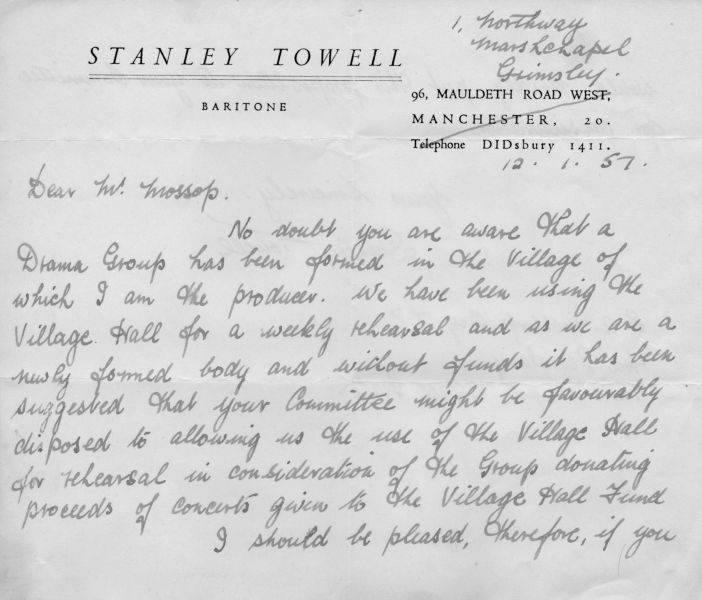 1, Northway
Marshchapel
Grimsley.
STANLEY TOWELL
BARITONE
96, MAULDETH ROAD WEST,
MANCHESTER, 20.
Telephone DIDsbury 1411.
12. 1. 57.
Dear Mr. Mossop.
No doubt you are aware that a
Drama Group has been formed in the Village of
which I am the producer. We have been using the
Village Hall for a weekly rehearsal and as we are a
newly formed body and without funds it has been
suggested that your Committee might be favourably
disposed to allowing us the use of the Village Hall
for rehearsal in consideration of the Group donating
proceeds of concerts given to the Village Hall Fund
I should be pleased, therefore, if you